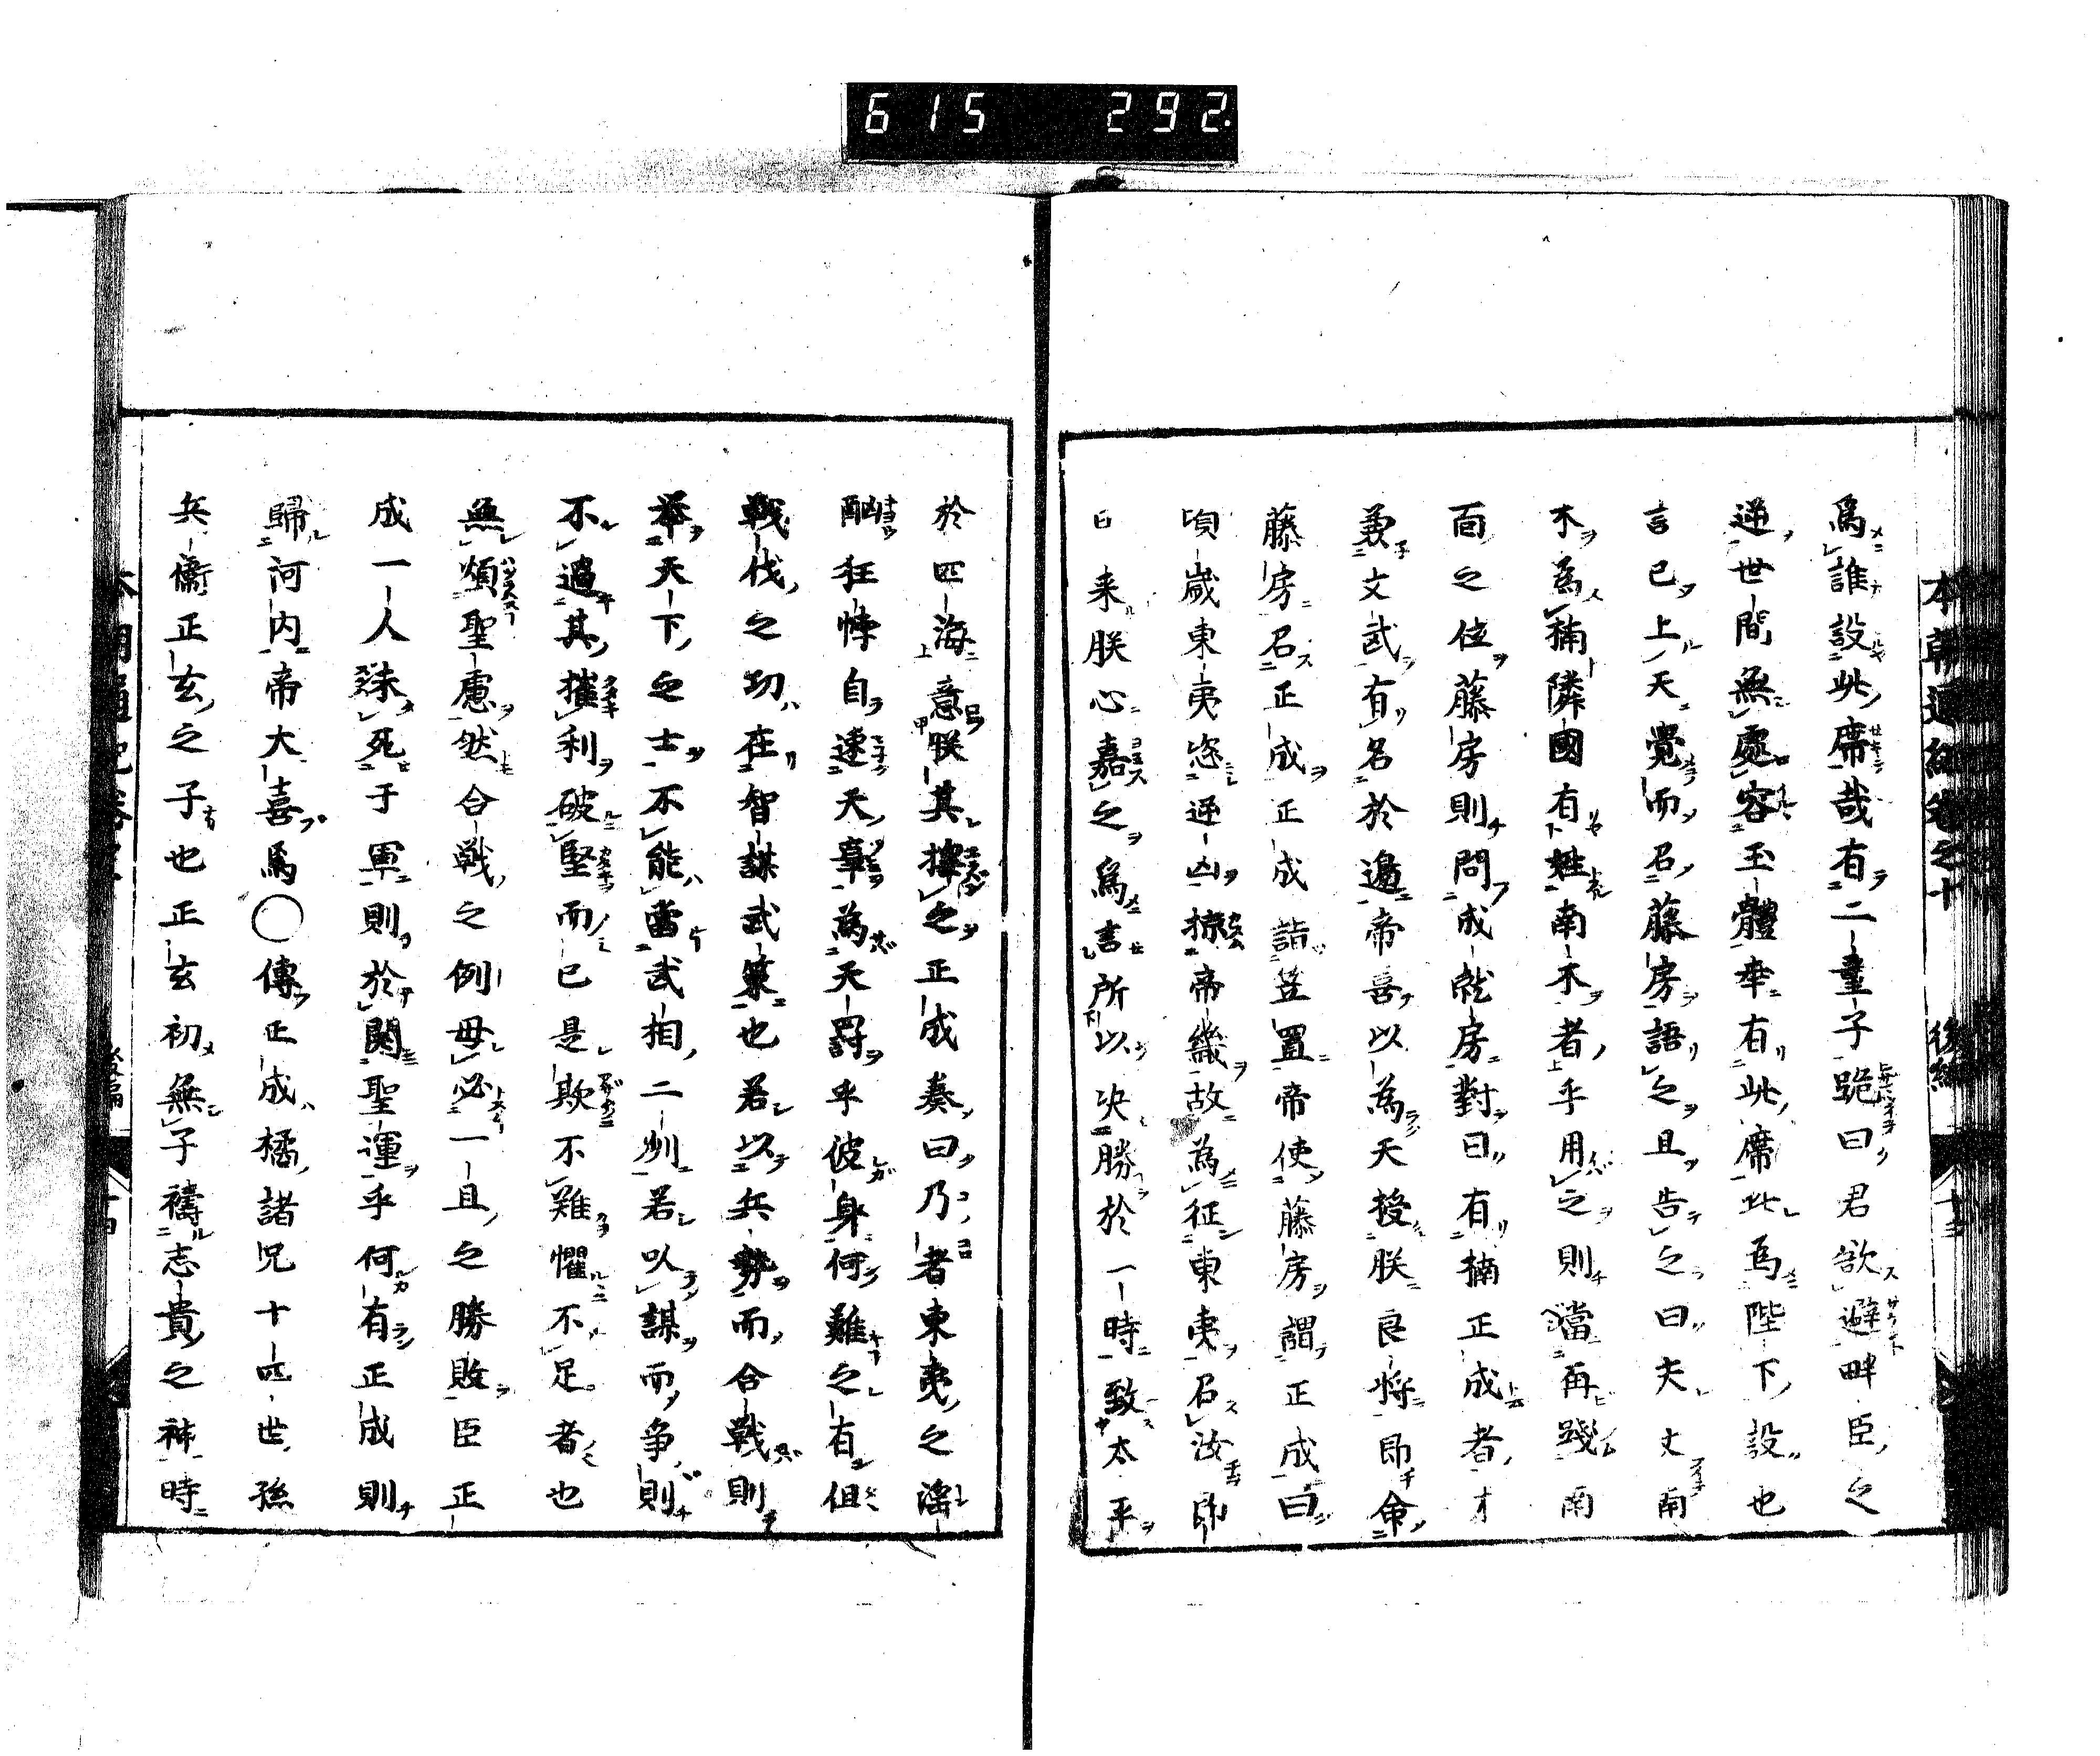 615 292
本朝通紀卷之十 後編 十三
爲誰設此席哉有二童子跪曰君欲避畔臣之
逆世間無處容玉體幸有此席此爲陛下設也
言已上天覺而召藤房語之且告之曰夫丈南
木爲楠隣國有姓南木者乎用之則當再踐南
面之位藤房則問成就房對曰有楠正成者才
兼文武有名於邉帝喜以為天授朕良將即命
藤房召正成正成詣笠置帝使藤房謂正成曰
頃歳東夷恣逆凶掠帝畿故為征東夷召汝即
日来朕心嘉之為言所以决勝於一時致太平
於四海意朕其擇之正成奏曰乃者東夷之淫
酗狂悖自速天辜為天罰乎彼身何難之有但
戰伐之功在智謀武策也若以兵勢而合戰則
舉天下之士不能當武相二州若以謀而争則
不過其摧利破堅而已是欺不難懼不足者也
無煩聖慮然合戰之例毋必一旦之勝敗臣正
成一人殊死于軍則於闓聖運乎何有正成則
歸河内帝大喜爲◯傳正成橘諸兄十四世孫
兵衞正玄之子也正玄初無子禱志貴之神時